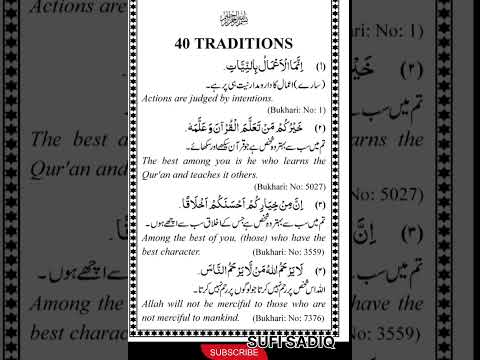 40 TRADITIONS
(۱) اِنَّمَا الْاَعْمَالُ بِالنِّیَّاتِ.
(سارے) اعمال کا دارومدار نیت ہی پر ہے۔
Actions are judged by intentions.
(Bukhari: No: 1)
(۲) خَیْرُکُمْ مَنْ تَعَلَّمَ الْقُرْآنَ وَعَلَّمَهٗ.
تم میں سب سے بہتر وہ شخص ہے جو قرآن سیکھے اور سکھائے۔
The best among you is he who learns the
Qur'an and teaches it others.
(Bukhari: No: 5027)
(۳) اِنَّ مِنْ خِیَارِکُمْ اَحْسَنَکُمْ اَخْلَاقًا.
تم میں سب سے بہتر وہ شخص ہے جس کے اخلاق سب سے اچھے ہوں۔
Among the best of you, (those) who have the
best character. (Bukhari: No: 3559)
(۴) لَا یَرْحَمُ اللهُ مَنْ لَّا یَرْحَمُ النَّاسَ.
اللہ اس شخص پر رحم نہیں کرتا جو لوگوں پر رحم نہیں کرتا۔
Allah will not be merciful to those who are
not merciful to mankind. (Bukhari: No: 7376)
SUFI SADIQ
SUBSCRIBE